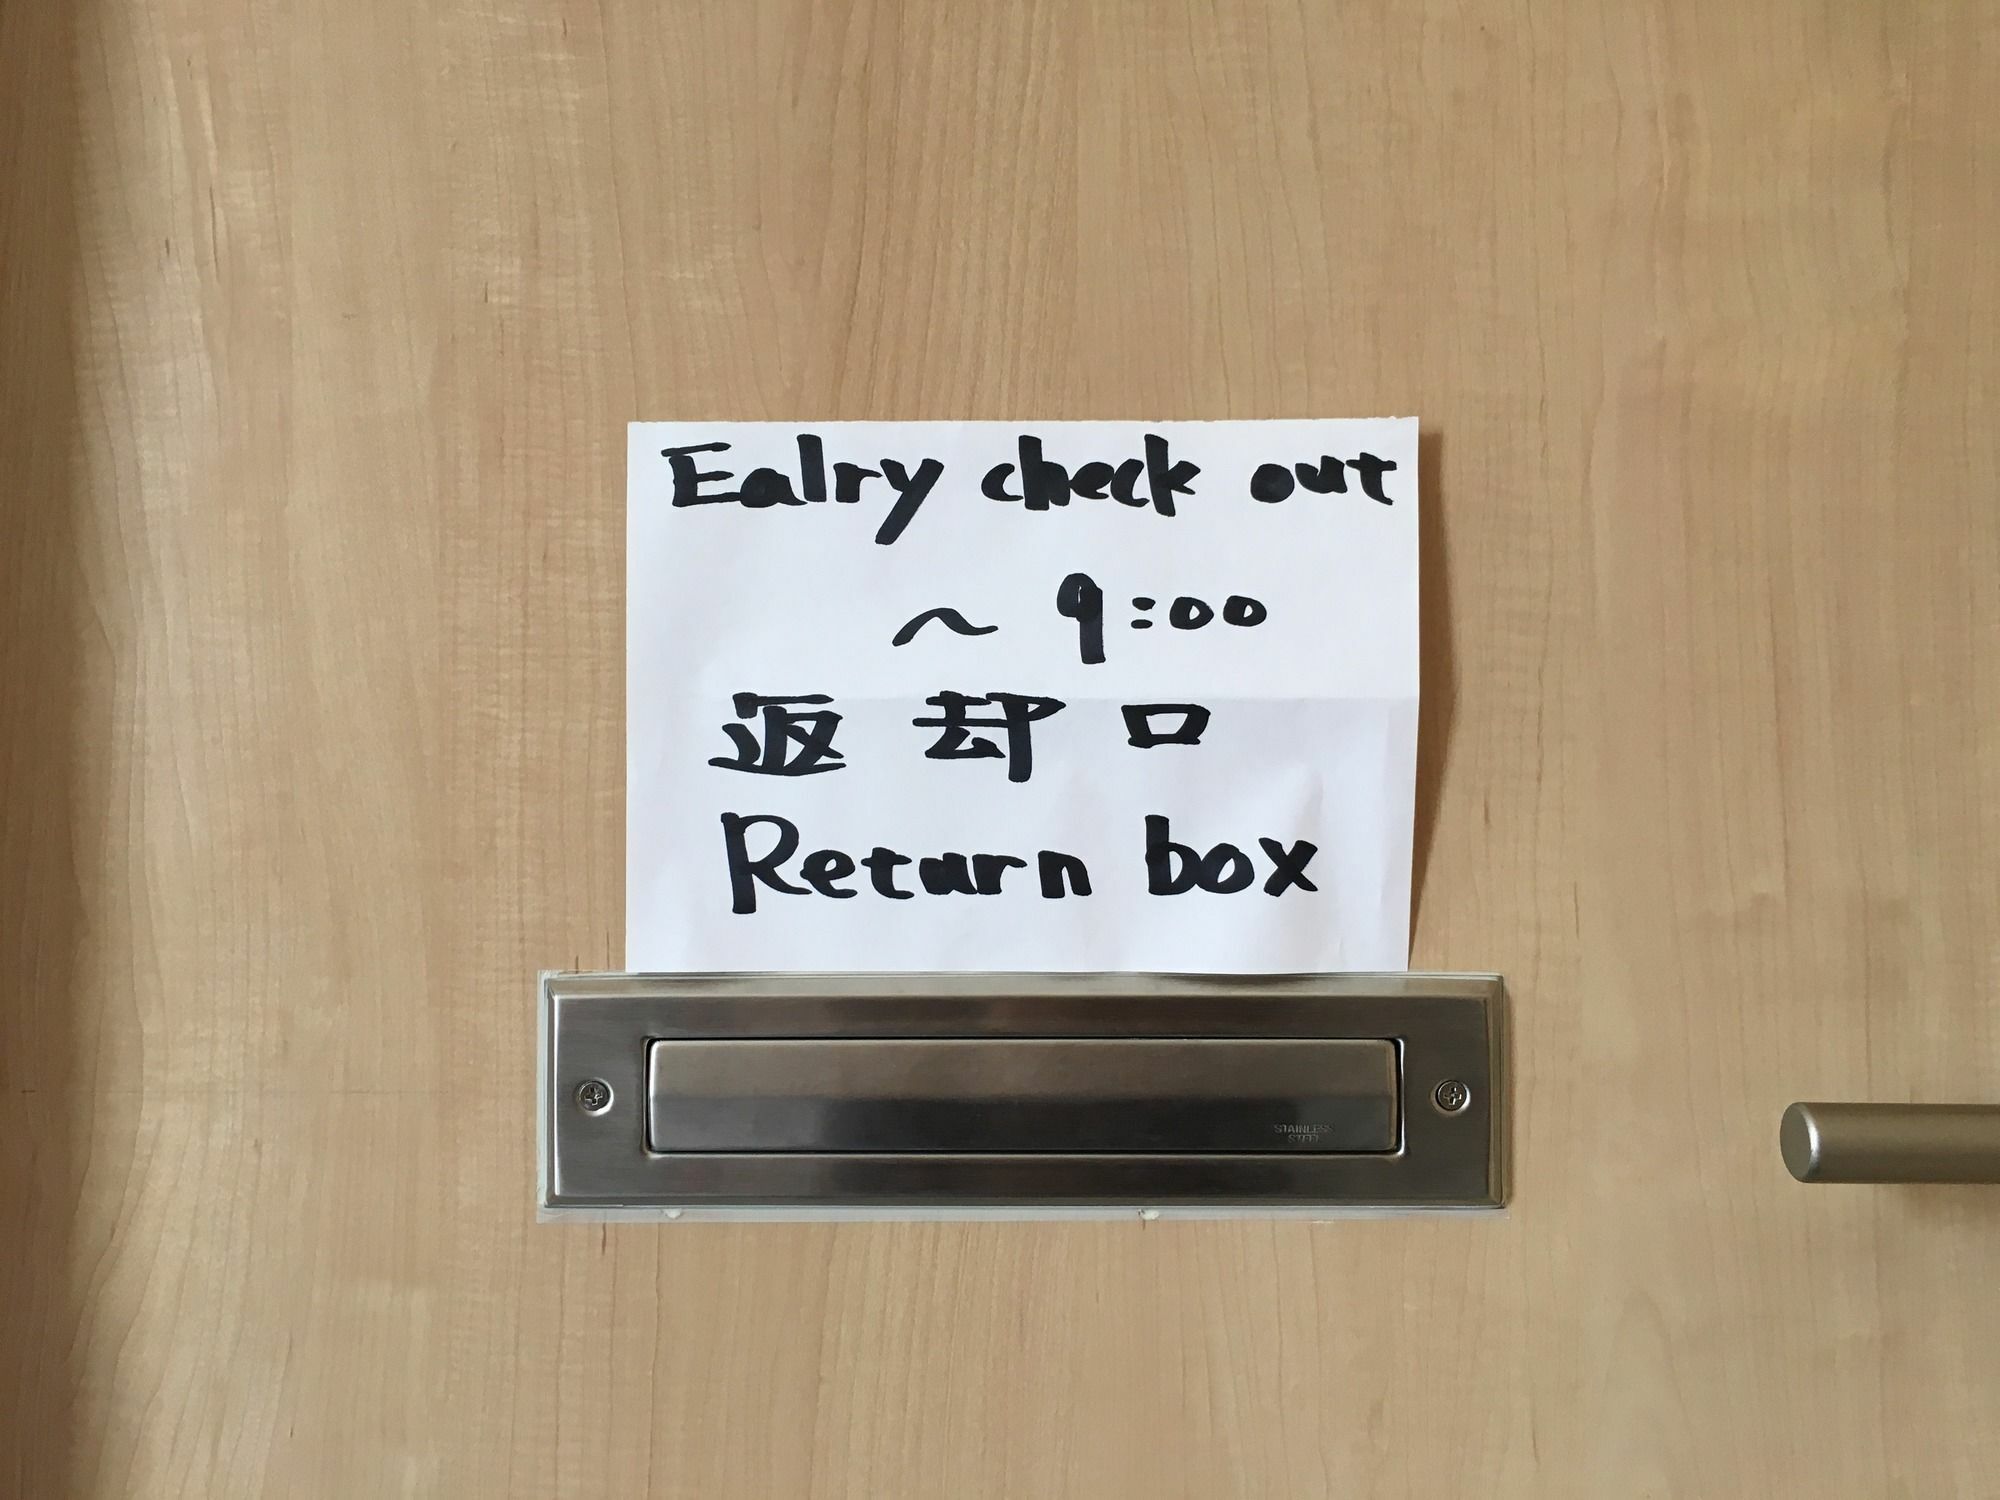 Ealry check out
～ 9:00
返却口
Return box
STAINLESS
STEEL